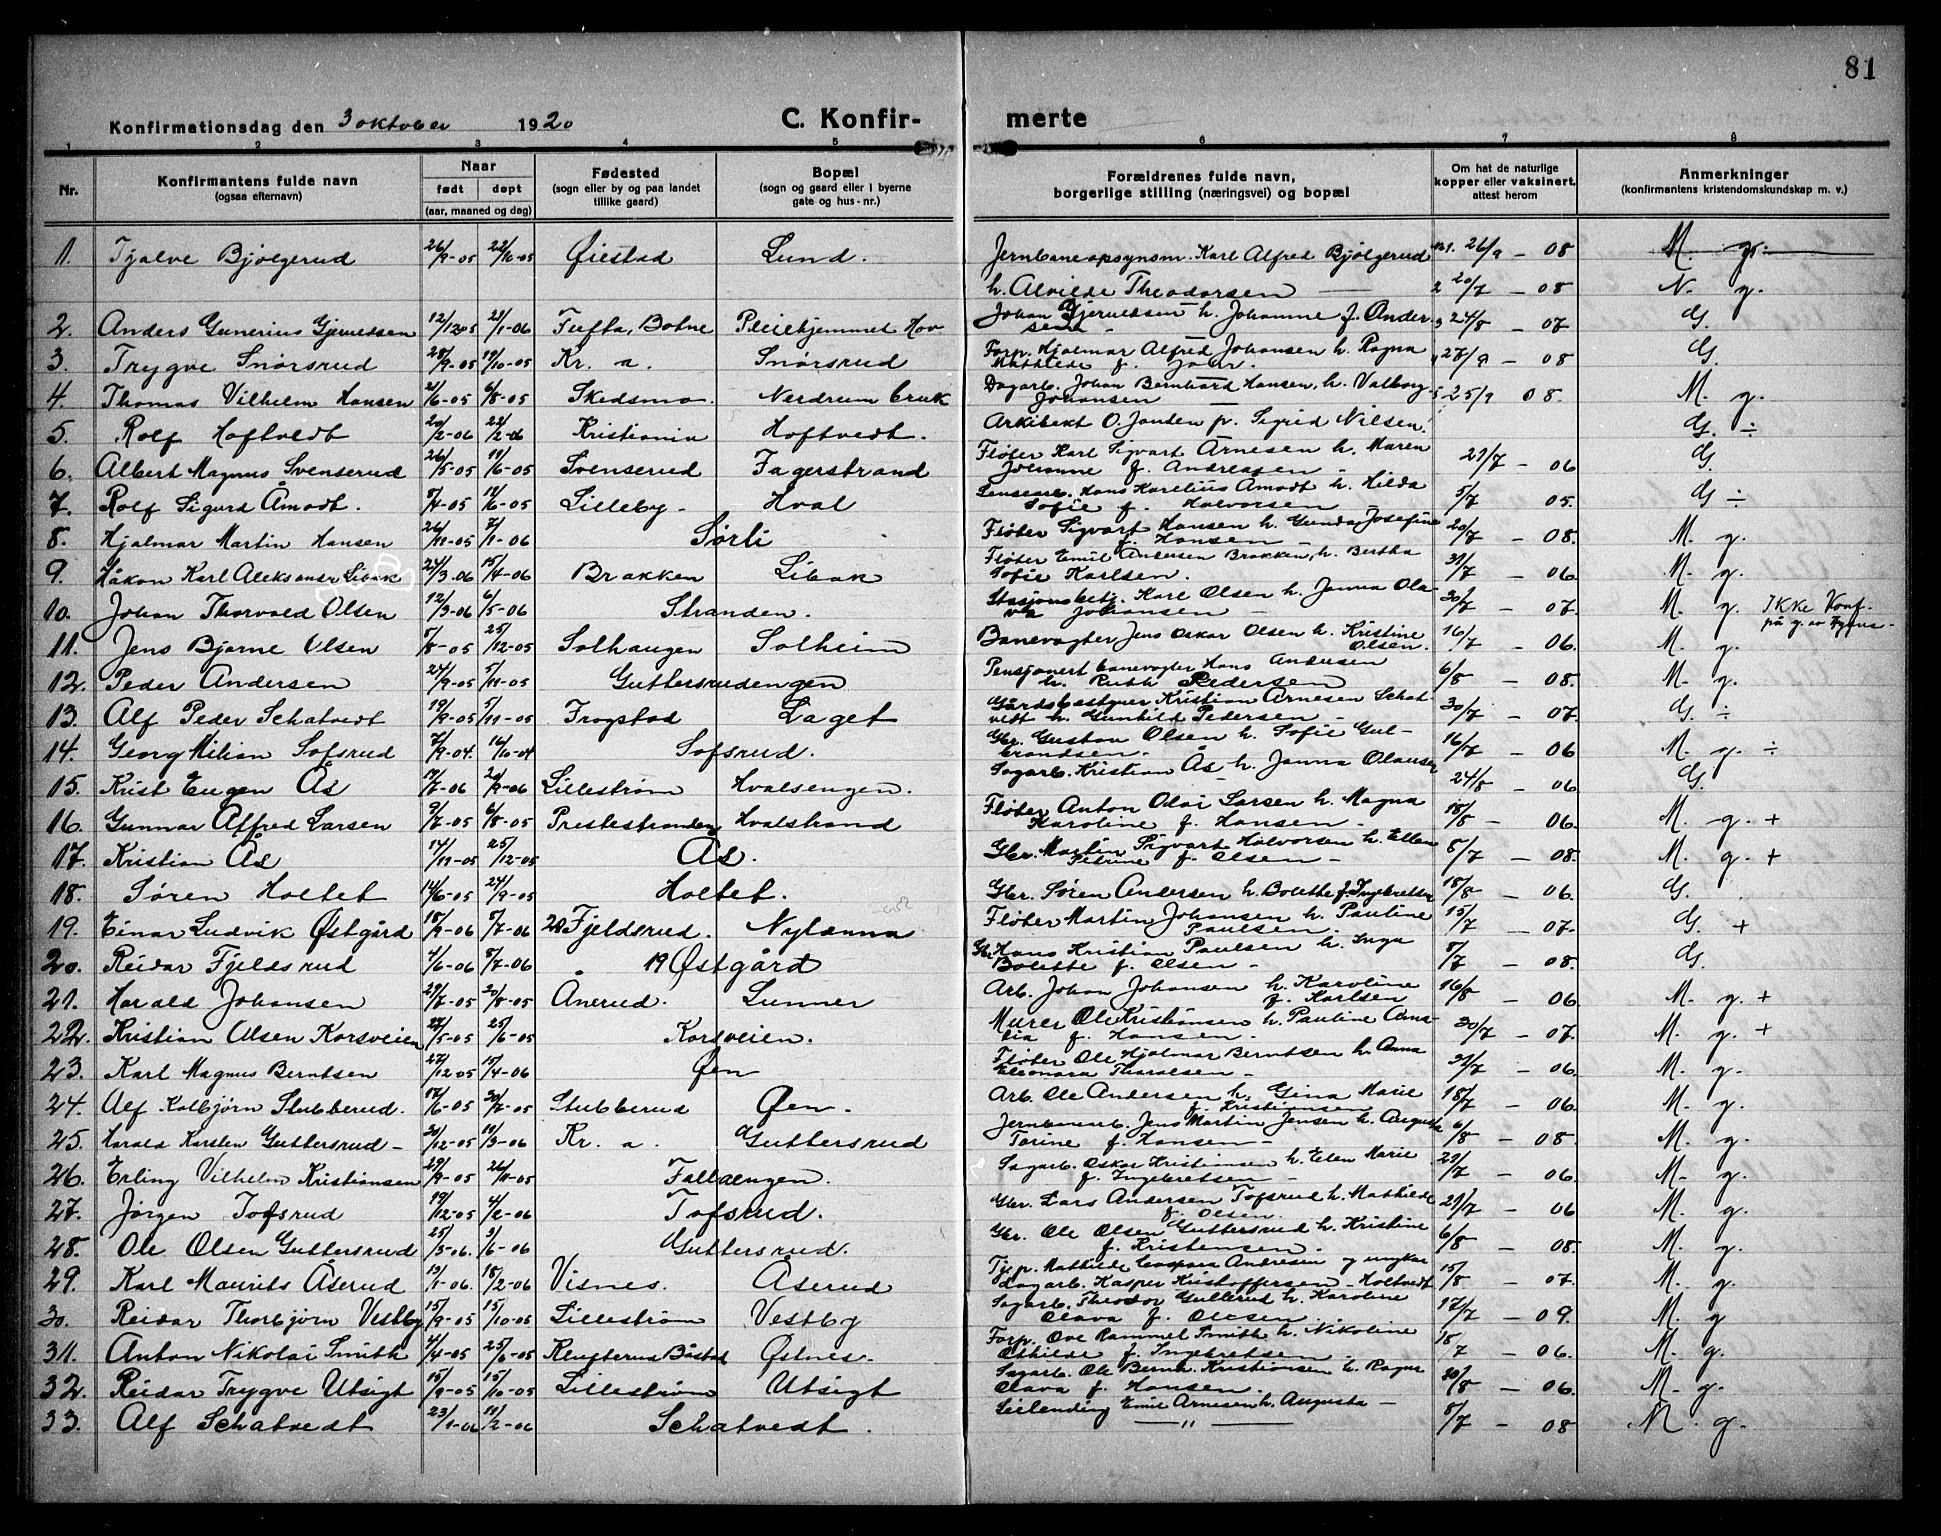 81
Konfirmationsdag den 3 oktober 1920
C. Konfir- merte
1 2 3 4 5 6 7 8
Nr.
Konfirmantens fulde navn
(ogsaa efternavn)
Naar
født døpt
(aar, maaned og dag)
Fødested
(sogn eller by og paa landet
tillike gaard)
Bopæl
(sogn og gaard eller i byerne
gate og hus-nr.)
Forældrenes fulde navn,
borgerlige stilling (næringsvei) og bopæl
Om hat de naturlige
kopper eller vaksinert,
attest herom
Anmerkninger
(konfirmantens kristendomskundskap m. v.)
1. Tjalve Bjølgerud 26/9-05 22/10-05 Øiestad Lund. Jernbaneopsynsm. Karl Alfred Bjølgerud 1. 26/9 - 08 M. g.
h. Alvilde Theodorsen 2 20/7 - 08 N. g.
2. Anders Gunerius Gjeruldsen 12/12 05 21/1-06 Tufta, Botne Pleiehjemmet Hov Johan Gjeruldsen h. Johanne f. Ander-
sen - 3 24/8 - 07 G.
3. Trygve Snørsrud 28/9-05 19/10-05 Kr. a. Snørsrud Forp. Hjalmar Alfred Johansen h. Ragna
Mathilde f. 4 27/9 - 08 G.
4. Thomas Vilhelm Hansen 21/6-05 6/8-05 Skedsmo. Nerdrum bruk Dagarb. Johan Bernhard Hansen, h. Valborg
Johansen 5 25/9 08. M. g.
5. Rolf Hoftvedt 20/2-06 22/2-06 Kristiania Hoftvedt. Arkitekt O. Janden pr. Sigrid Nilsen. G. ÷
6. Albert Magnus Svenserud 26/5-05 11/6-05 Svenserud Fagerstrand Fløter Karl Sigvart Arnesen h. Maren
Johanne f. Andreasen - 29/7 - 06 G.
7. Rolf Sigurd Åmodt. 8/4-05 12/6-05 Lilleby - Hval Hans Karelius Amodt h. Hilda
Sofie f. Halvorsen 5/7 05. G ÷
8. Hjalmar Martin Hansen 26/11-05 7/1-06 Sørli Fløter Sigvart Hansen h. Gunda Josefine
f. Hansen - 20/7 - 08. M. g.
9. Håkon Karl Aleksander Libak 24/3-06 15/4-06 Brakken Libak Fløter Emil Andersen Brakken, h. Bertha
Sofie Karlsen. 31/7 - 06 M. g.
10. Johan Thorvald Olsen 12/3-06 6/5-06 Stranden. Stasjonsbetj. Karl Olsen h. Janna Ola-
va Johansen - 30/7 - 07 M. g. Ikke Konf.
på g. av
11. Jens Bjarne Olsen 8/8-05 25/12-05 Solhaugen Solheim Banevogter Jens Oskar Olsen h. Kristine
Olsen. 16/7 - 06. M. g.
12. Peder Andersen 24/9-05 5/11-05 Guttersrudengen Pensjonert banevogter Hans Andersen
h. Ruth Pedersen 6/8 - 08. M. g.
13. Alf Peder Schatvedt 19/9-05 5/11-05 Frogstad Laget Gårdsbestyrer Kristian Arnesen Schat-
vedt h. Gunhild Pedersen - 30/7 - 07 G. ÷
14. Georg Milian Sofsrud 7/9-04. 16/10-04 Sofsrud. Gbr. Gustav Olsen h. Sofie Gul-
brandsen. 16/7 - 06 M. g. ÷
15. Krist Eugen Ås 17/7-06 20/9-06 Lillestrøm Hvalsengen. Sagarb. Kristian Ås h. Janna Olausen 24/8 - 06 G.
16. Gunnar Alfred Larsen 9/7-05 6/8-05 Prestestranden Hvalstrand Fløter Anton Odai Larsen h. Magna
Karoline f. Hansen - 18/8 - 06. M. g. +
17. Kristian Ås 14/11-05 25/12-05 Ås. Gbr. Martin Sigvart Halvorsen h. Ellen
Petrine f. Olsen - 8/7 - 08. M. g. +
18. Søren Holtet 14/6-05 24/9-05 Holtet. Gbr. Søren Andersen h. Bolette f. Ingebretsen 18/8 - 06. G.
19. Einar Ludvik Østgård 18/2-06 8/7-06 20 Fjeldsrud. Nylænna Fløter Martin Johansen h. Pauline
Paulsen. 15/7 - 07. G. +
20. Reidar Fjeldsrud 4/6-06 8/7-06 19 Østgård Gbr. Hans Kristian Paulsen h. Inga
Bolette f. Olsen - 8/7 - 08. G.
21. Harald Johansen 29/7-05 20/8-05 Ånerud. Lunner Arb. Johan Johansen h. Karoline
f. Karlsen 16/8 - 06. M. g. +
22. Kristian Olsen Korsveien 27/5-05 25/6-05 Korsveien. Murer Ole Kristiansen h. Pauline Ama-
lia f. Hansen. 30/7 - 07. M. g. +
23. Karl Magnus Berntsen 27/12 05 15/4-06 Øen Fløter Ole Hjalmar Berntsen h. Anna
Eleonora Tharalsen - 31/7 - 06. M. g.
24. Alf Kolbjørn Stubberud. 17/6-05 30/7-05 Stubberud Øen. Arb. Ole Andersen h. Gina Marie
f. Kristiansen 18/7 - 06. M. g.
25. Harald Karsten Guttersrud - 21/12-05 19/3-06 Kr. a. Guttersrud Jernbanearb. Jens Martin Jensen h. Augusta
Torine f. Hansen - 6/8 - 08 M. g.
26. Erling Vilhelm Kristiansen 29/9-05 26/11-05 Fallaengen. Sagarb. Oskar Kristiansen h. Ellen Marie
f. Ingebretsen - 29/7 - 06 M. g.
27. Jørgen Tofsrud 19/12-05 4/2-06 Tofsrud. Gbr. Lars Andersen Tofsrud h. Mathilde
f. Olsen. 29/7 - 06 M. g.
28. Ole Olsen Guttersrud 25/3-06. 3/6-06 Guttersrud. Gbr. Ole Olsen Guttersrud h. Kristine
f. Kristensen. 6/8 - 08. M. g.
29. Karl Maurits Åserud 13/1-06. 18/2-06 Visnes. Åserud Tjp. Mathilde Caspara Andresen og ungkar
dagarb. Kasper Kristoffersen - Holtvedt 15/8 - 07. M. g.
30. Reidar Thorbjørn Vestby 15/9-05 15/10-05 Lillestrøm Vestby Sagarb. Theodor Gullerud h. Karoline
Olava f. Olsen - 17/7 - 09. M. g
31. Anton Nikolai Smith 4/4-05 25/6-05 Klufterud Båstad Østnes. Forp. Ove Rammel Smith h. Nikoline
Othilde f. Ingebretsen - 18/7 - 06. M. g.
32. Reidar Trygve Utsigt 15/9-05 15/10-05 Lillestrøm Utsigt Sagarb. Ole Bernh. Kristiansen h. Ragna
Olava f. Hansen. 20/8 - 06. M. g.
33. Alf Schatvedt 23/1-06 11/2-06 Schatvedt. Leilending Emil Arnesen h. Augusta -
— " — 8/7 - 08 M. g.